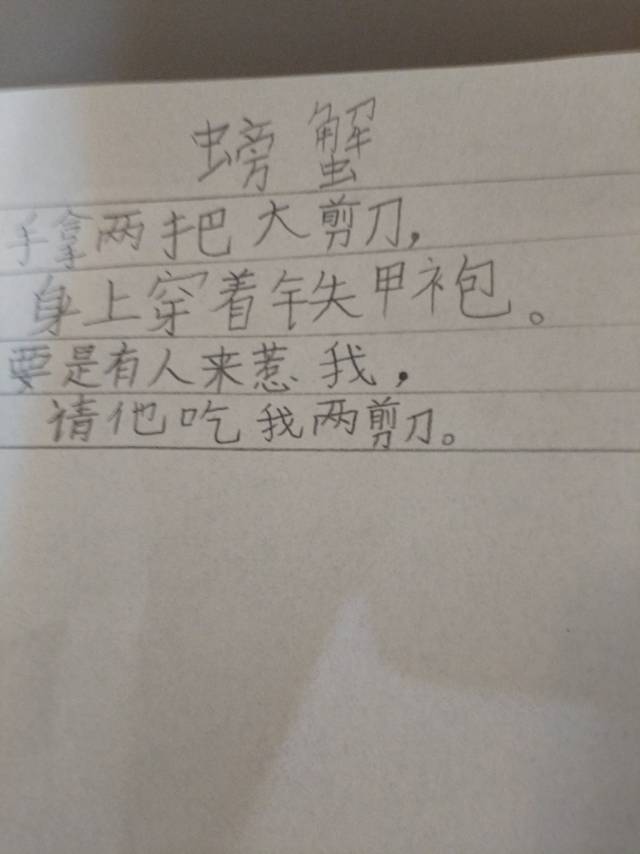 螃蟹
手拿两把大剪刀，
身上穿着铁甲袍。
要是有人来惹我，
请他吃我两剪刀。